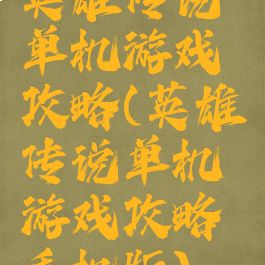 英雄传说
单机游戏
攻略(英雄
传说单机
游戏攻略
手机版)